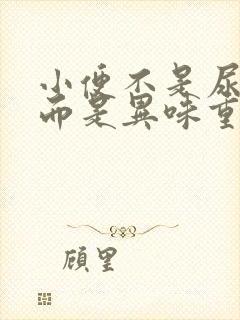 小便不是尿
而是異味重
顧里